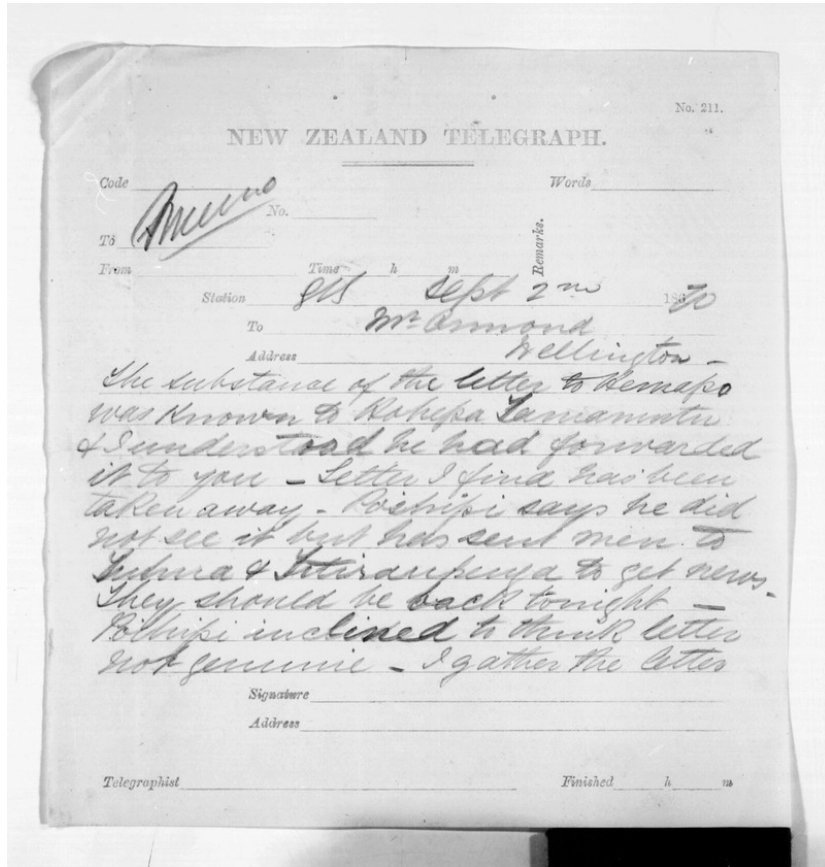 No. 211.
NEW ZEALAND TELEGRAPH.
Code
Words
No.
To
Remarks.
From Time h m
Station Sept 2nd 1870
To Mr Ormond
Address Wellington -
The substance of the letter to Hemapo
was known to Hohepa Tamamutu
& I understood he had forwarded
it to you - Letter I find has been
taken away - Poihipi says he did
not see it but has sent men to
Tuhua & to get news -
They should be back tonight -
Poihipi inclined to think letter
not genuine - I gather the letter
Signature
Address
Telegraphist Finished h m